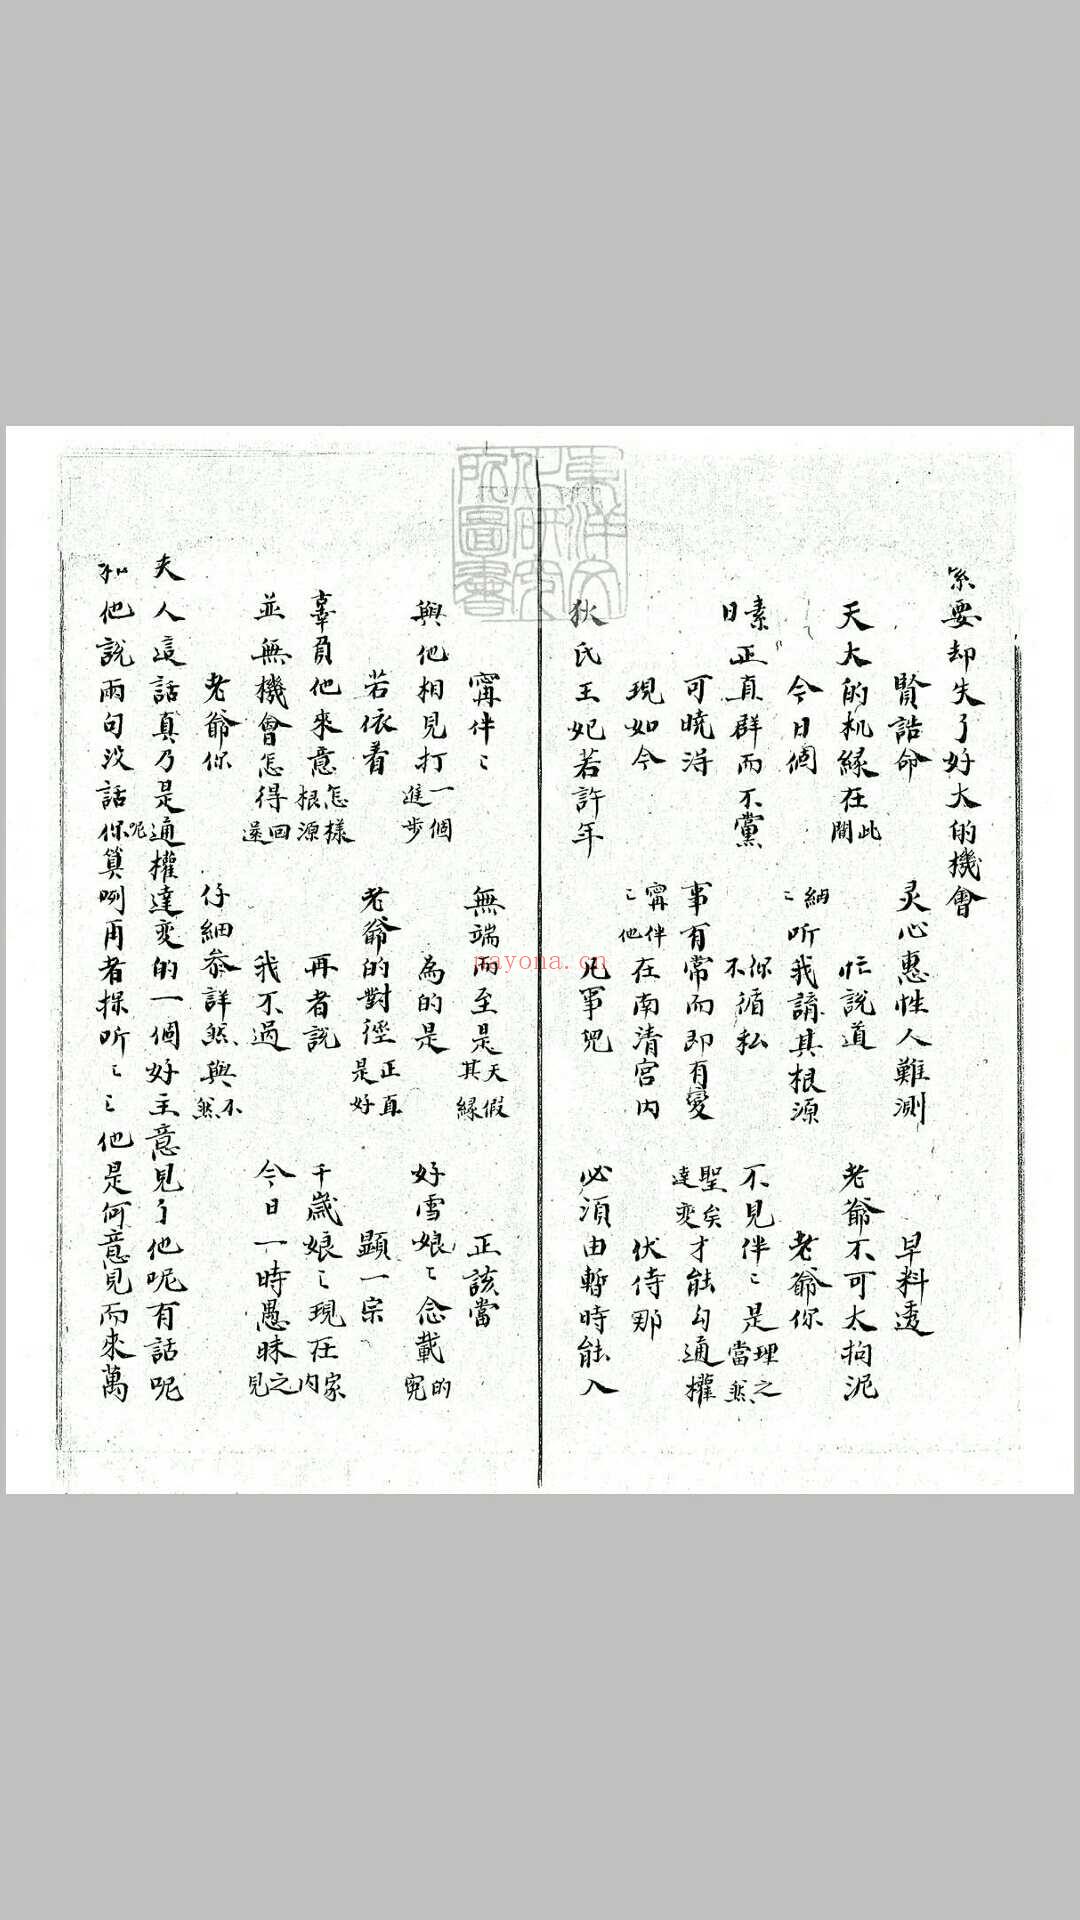 緊要却失了好大的機會
賢誥命 灵心惠性人難測 早料透
天大的机緣在此関 忙說道 老爺不可太拘泥
今日個 細〻听我講其根源 老爺你
素日正真群而不黨 你不循私 不見伴〻是理之當然
可曉淂 事有常而即有變 聖矣達变才能勾通權
現如今 寗伴〻他在南清宮內 伏侍那
狄氏王妃若許年 凡事兒 必須由暫時能入
寗伴〻 無端而至是天假其緣 正該當
與他相見打一個進步 為的是 好雪娘〻念載的寃
若依着 老爺的對徑正真是好 顕一宗
辜負他來意怎樣根源 再者說 千歲娘〻現在家內
並無機會怎得回還 我不過 今日一時愚昧之見
老爺你 仔細叅詳然與不然
夫人這話真乃是通權達变的一個好主意見了他呢有話呢
和他說兩句没話呢你箕咧再者探听〻〻他是何意見而來萬
東洋文化研究所圖書
nayona.cn